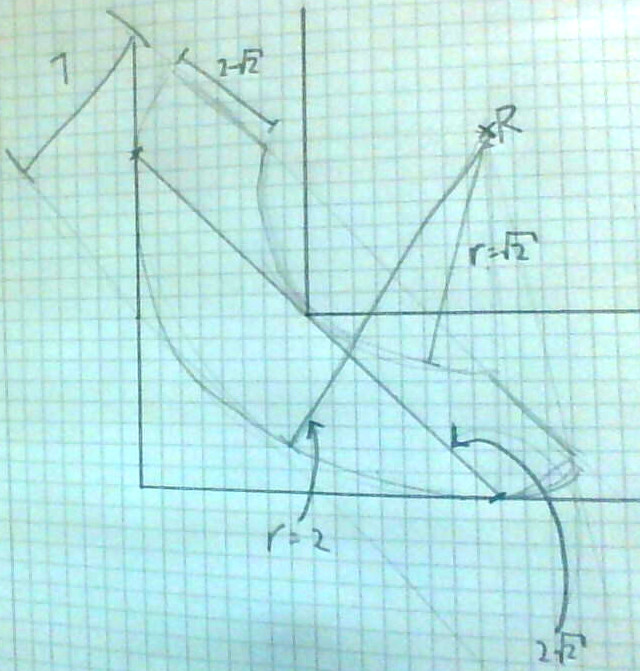 1
2-√2
R
r=√2
r=2
2√2